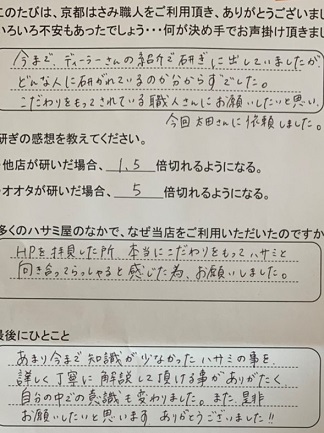 このたびは、京都はさみ職人をご利用頂き、ありがとうございまし
いろいろ不安もあったでしょう・・・何が決め手でお声掛け頂きまし
今まで ディーラーさんの紹介で研ぎに出していましたが、
どんな人に研がれているのか分からずでした。
こだわりをもってされている職人さんにお願いしたいと思い、
今回太田さんに依頼しました。
研ぎの感想を教えてください。
・他店が研いだ場合、 1.5 倍切れるようになる。
・オオタが研いだ場合、 5 倍切れるようになる。
多くのハサミ屋のなかで、なぜ当店をご利用いただいたのですか
HPを拝見した所 本当にこだわりをもってハサミと
向き合ってらっしゃると感じた為、お願いしました。
最後にひとこと
あまり今まで知識が少なかったハサミの事を、
詳しく丁寧に解説して頂ける事がありがたく、
自分の中での意識も変わりました。また、是非
お願いしたいと思います ありがとうございました!!